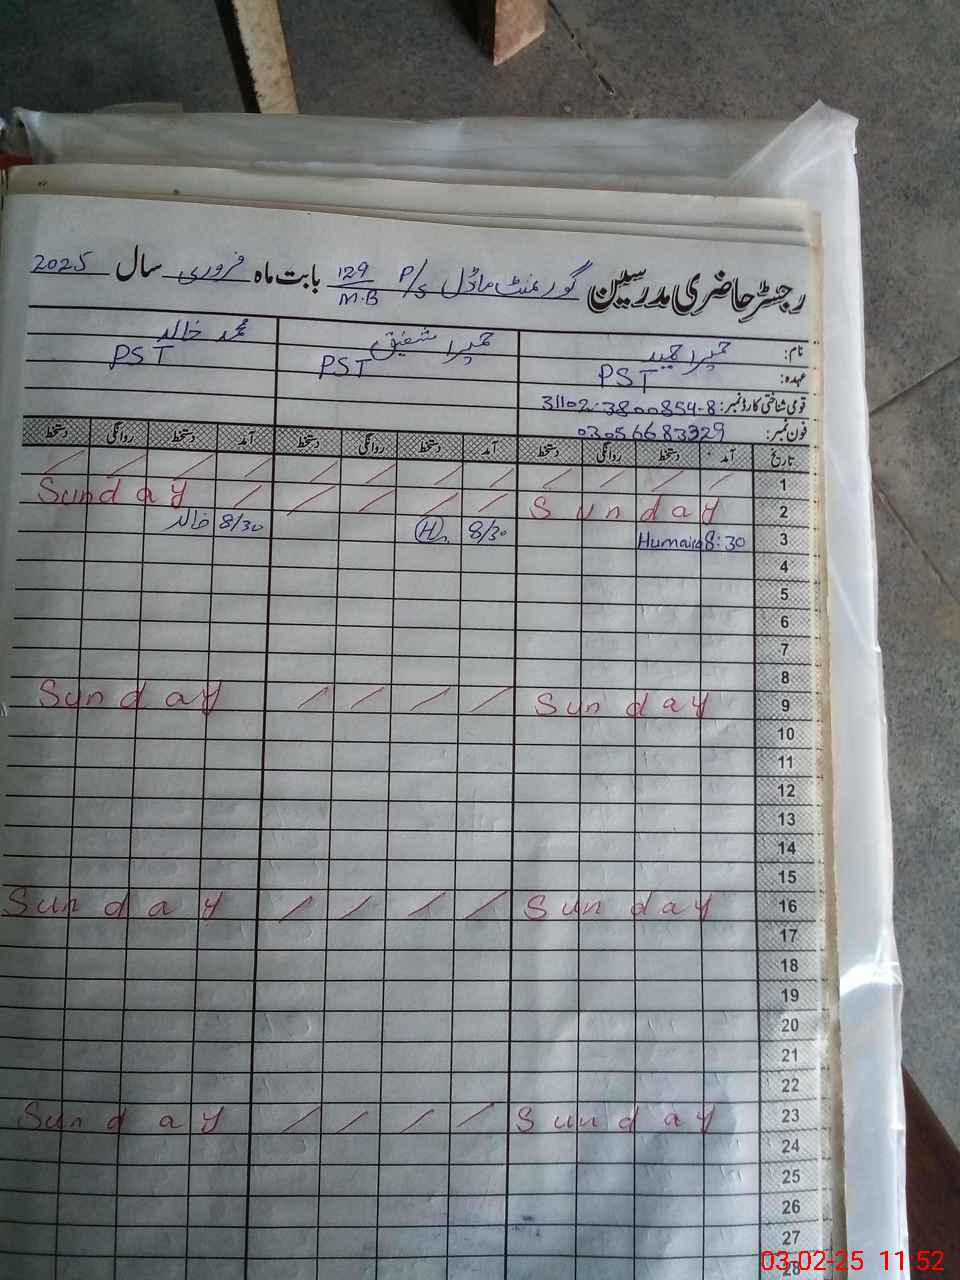 رجسٹر حاضری مدرسین گورنمنٹ ماڈل P/S 129/M.B بابت ماہ فروری سال 2025
نام: حمیرا حمید حمیرا شفیق محمد خالد
عہدہ: PST PST PST
قومی شناختی کارڈ نمبر: 31102-3800854-8
فون نمبر: 03056683329
تاریخ آمد دستخط روانگی دستخط آمد دستخط روانگی دستخط آمد دستخط روانگی دستخط
1
2 Sunday Sunday
3 8:30 Humaira 8/30 H 8/30 خالد
4
5
6
7
8
9 Sunday Sunday
10
11
12
13
14
15
16 Sunday Sunday
17
18
19
20
21
22
23 Sunday Sunday
24
25
26
27
28
03-02-25 11:52